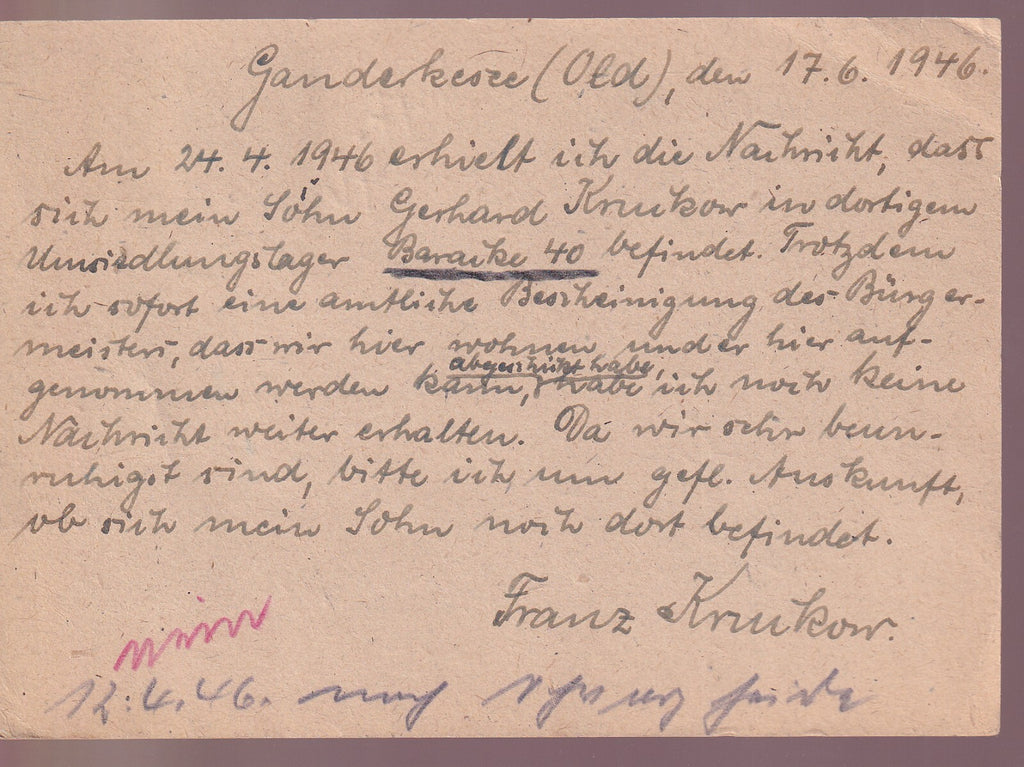 Ganderkesee (Old), den 17.6.1946.
Am 24.4.1946 erhielt ich die Nachricht, dass
sich mein Sohn Gerhard Krukow in dortigem
Umsiedlungslager Baracke 40 befindet. Trotzdem
ich sofort eine amtliche Bescheinigung des Bürger-
meisters, dass wir hier wohnen und er hier auf-
abgeschickt habe,
genommen werden kann, habe ich noch keine
Nachricht weiter erhalten. Da wir sehr beun-
ruhigt sind, bitte ich um gefl. Auskunft,
ob sich mein Sohn noch dort befindet.
Franz Krukow.
nein
12.4.46. nach